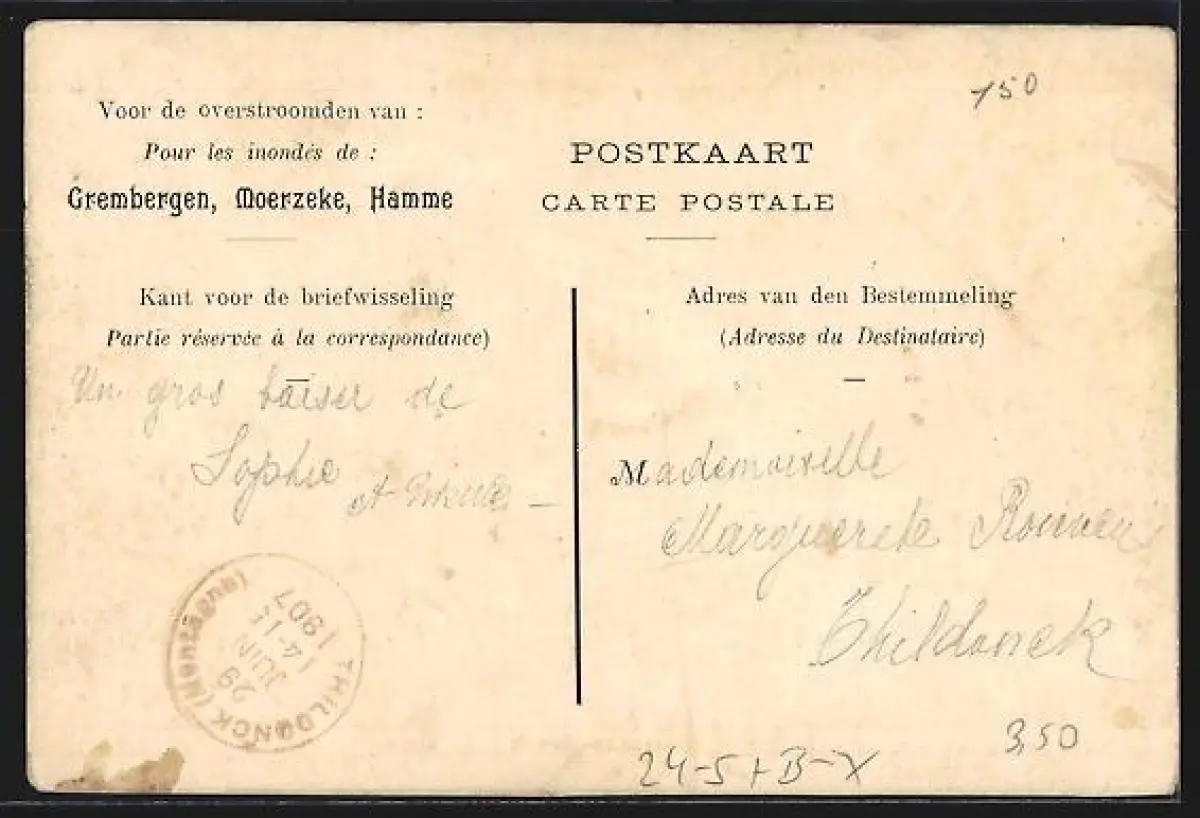 150
Voor de overstroomden van :
Pour les inondés de :
Grembergen, Moerzeke, Hamme
POSTKAART
CARTE POSTALE
Kant voor de briefwisseling
Partie réservée à la correspondance)
Un gros baiser de
Sophie et
Adres van den Bestemmeling
(Adresse du Destinataire)
Mademoiselle
Marguerete
Thildonck
THILDONCK (Montagne)
29
JUIN
14-15
1907
3,50
24-5+B-X